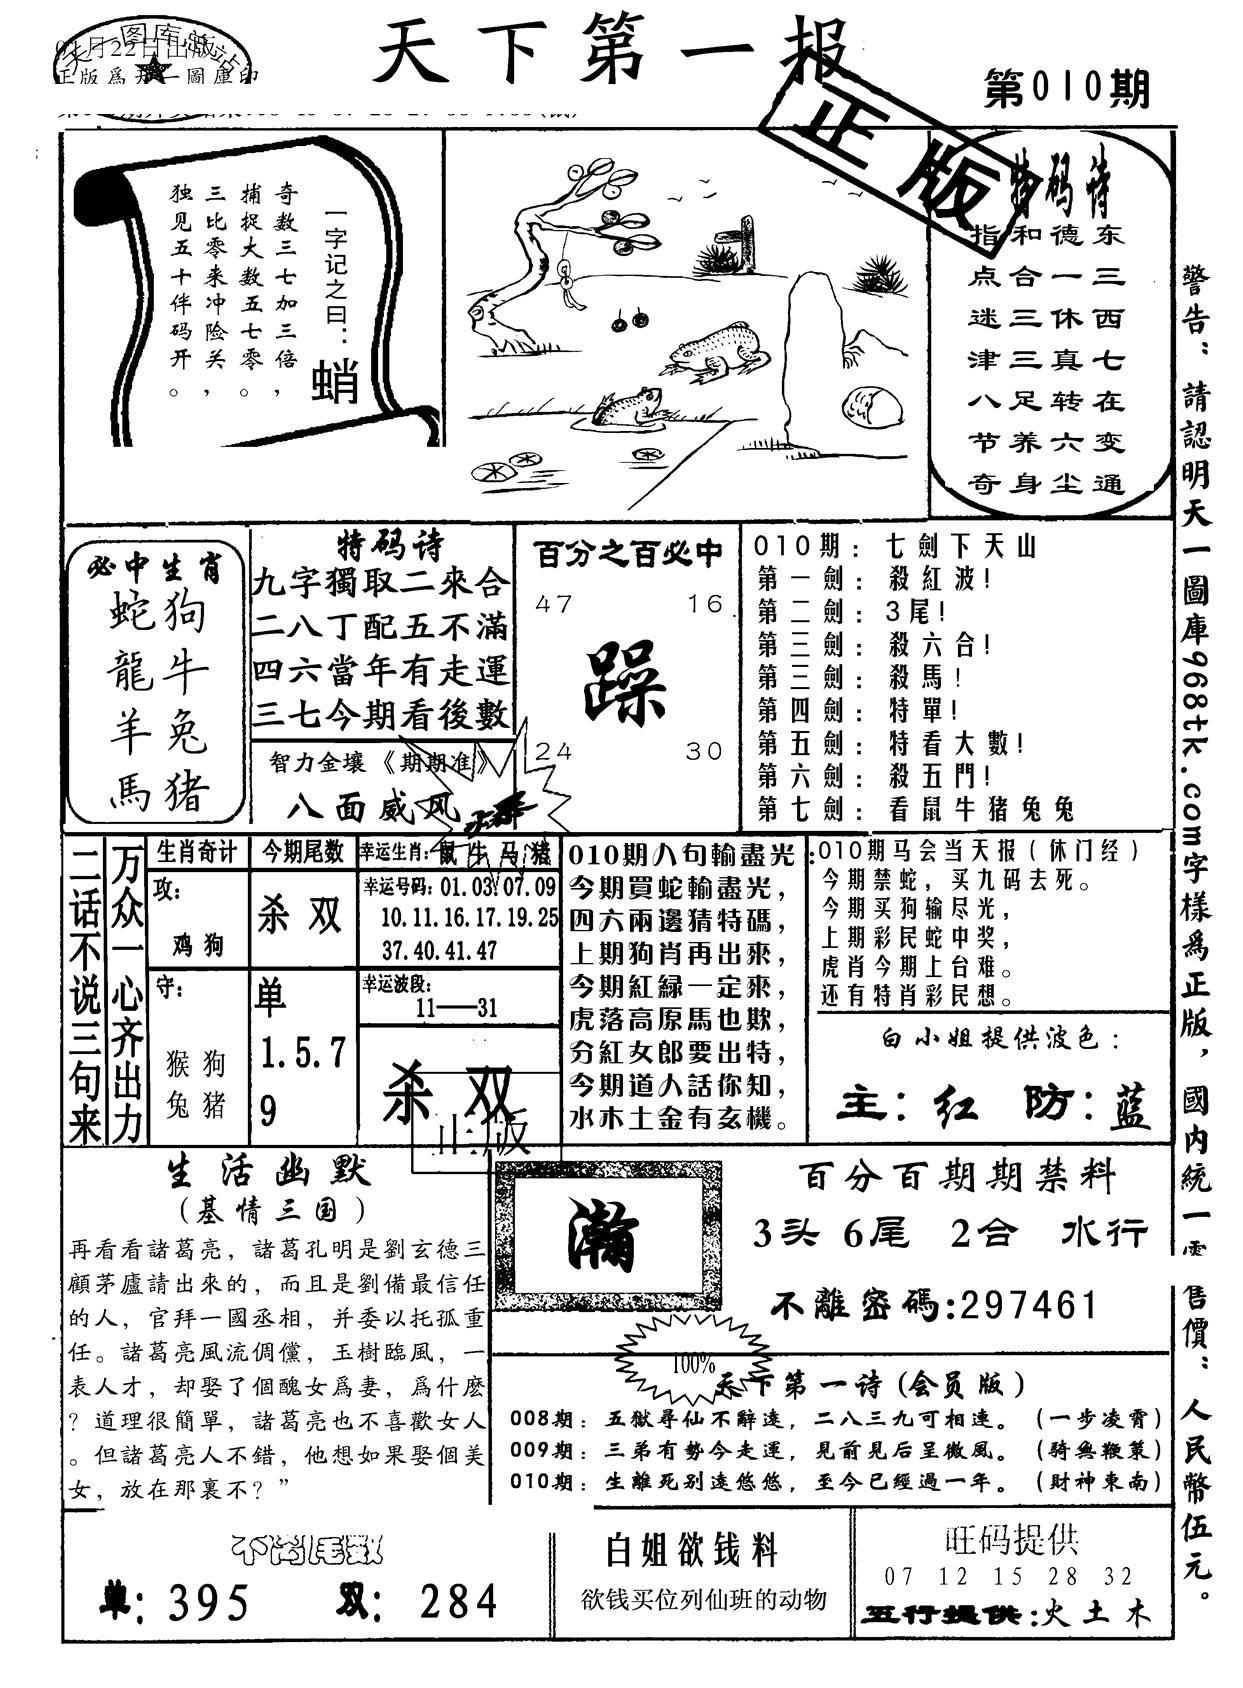 天下第一报
第010期
01月22日出版
正版
一字记之曰：蛸
奇数三七加三倍，
捕捉大数五七零。
三比零来冲险关，
独见五十伴码开。
特码诗
东三西七在变通
德一休真转六尘
和合三三足养身
指点迷津八节奇
警告：請認明天一圖庫968tk.com字樣為正版，國內統一
售價：人民幣伍元。
必中生肖
蛇狗
龍牛
羊兔
馬猪
特码诗
九字獨取二來合
二八丁配五不滿
四六當年有走運
三七今期看後數
智力金壤《期期准》
八面威风
百分之百必中
47 16
躁
24 30
010期：七劍下天山
第一劍：殺紅波!
第二劍：3尾!
第三劍：殺六合!
第三劍：殺馬!
第四劍：特單!
第五劍：特看大數!
第六劍：殺五門!
第七劍：看鼠牛猪兔兔
二话不说三句来
万众一心齐出力
生肖奇计
攻：
鸡狗
守：
猴狗
兔猪
今期尾数
杀双
单
1.5.7
9
幸运生肖：鼠牛马猪
幸运号码：01.03.07.09
10.11.16.17.19.25
37.40.41.47
幸运波段：
11——31
杀双
正版
010期八句輸盡光：
今期買蛇輸盡光，
四六兩邊猜特碼，
上期狗肖再出來，
今期紅緑一定來，
虎落高原馬也欺，
分紅女郎要出特，
今期道人話你知，
水木土金有玄機。
010期马会当天报（休门经）
今期禁蛇，买九码去死。
今期买狗输尽光，
上期彩民蛇中奖，
虎肖今期上台难。
还有特肖彩民想。
白小姐提供波色：
主：红 防：蓝
生活幽默
（基情三国）
再看看諸葛亮，諸葛孔明是劉玄德三
顧茅廬請出來的，而且是劉備最信任
的人，官拜一國丞相，并委以托孤重
任。諸葛亮風流倜儻，玉樹臨風，一
表人才，却娶了個醜女爲妻，爲什麽
？道理很簡單，諸葛亮也不喜歡女人
。但諸葛亮人不錯，他想如果娶個美
女，放在那裏不？”
瀚
百分百期期禁料
3头 6尾 2合 水行
不離密碼:297461
100%
天下第一诗（会员版）
008期：五獄尋仙不辭遠，二八三九可相連。（一步凌霄）
009期：三弟有勢今走運，見前見后呈微風。（騎無鞭策）
010期：生離死别遠悠悠，至今已經過一年。（財神東南）
不离尾数
单：395 双：284
白姐欲钱料
欲钱买位列仙班的动物
旺码提供
07 12 15 28 32
五行提供：火土木